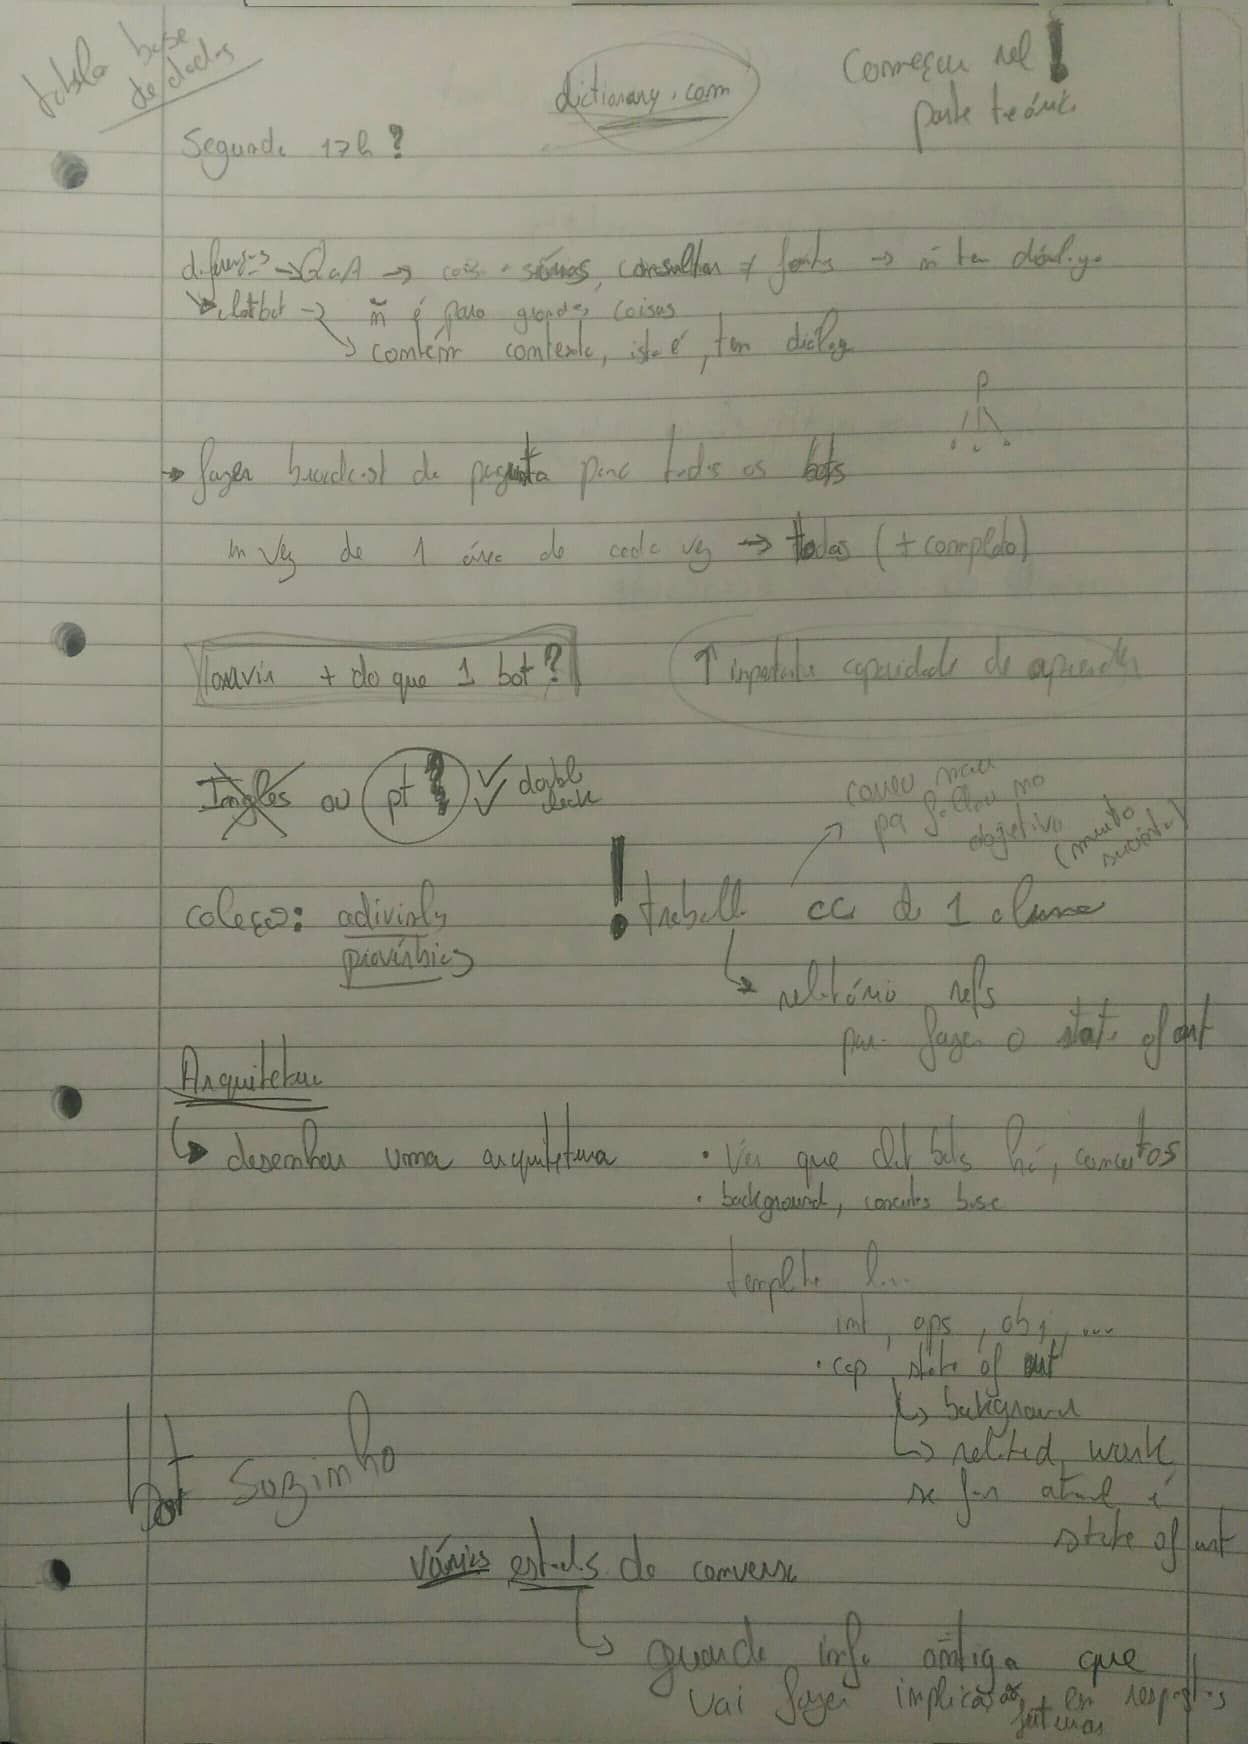 tabela base
de dados
dictionary.com
Começar rel !
parte teórica
Segunda 17h?
diferenças → QaA → cois + sérias, consultar + fonts → ñ tem diálogo
chatbot → ñ é para grandes coisas
contém contexto, isto é, tem diálog
P
→ fazer broadcast de pergunta para todos os bots
em vez de 1 área de cada vez → todas (+ completo)
Haveria + do que 1 bot?
↑ importante capacidade de aprender
Inglês ou pt? ✓✓ double check
correu mau
pq falhou no
objetivo
(muito
sucinto)
coleções: adivinhs
provérbios
! trabalh CC de 1 aluno
relatório refs
para fazer o state of art
Arquitetura
↳ desenhar uma arquitetura
• Ver que chat bots há, conceitos
• background, conceitos base
template l...
int, ops, obj, ...
• cap state of art
↳ background
↳ related work
se for atual é
state of art
bot Sozinho
vários estads de conversa
↳ guarda info antiga que
vai fazer implicações em respostas
futuras